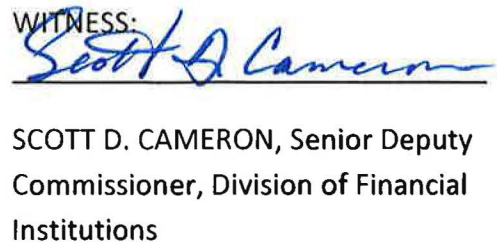 WITNESS:
Scott D Cameron
SCOTT D. CAMERON, Senior Deputy
Commissioner, Division of Financial
Institutions